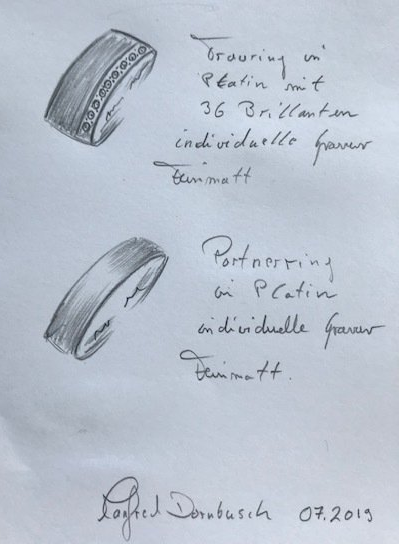 Trauring in
Platin mit
36 Brillanten
individuelle Gravur
Feinmatt
Partnerring
in Platin
individuelle Gravur
Feinmatt.
Manfred Dornbusch 07.2019